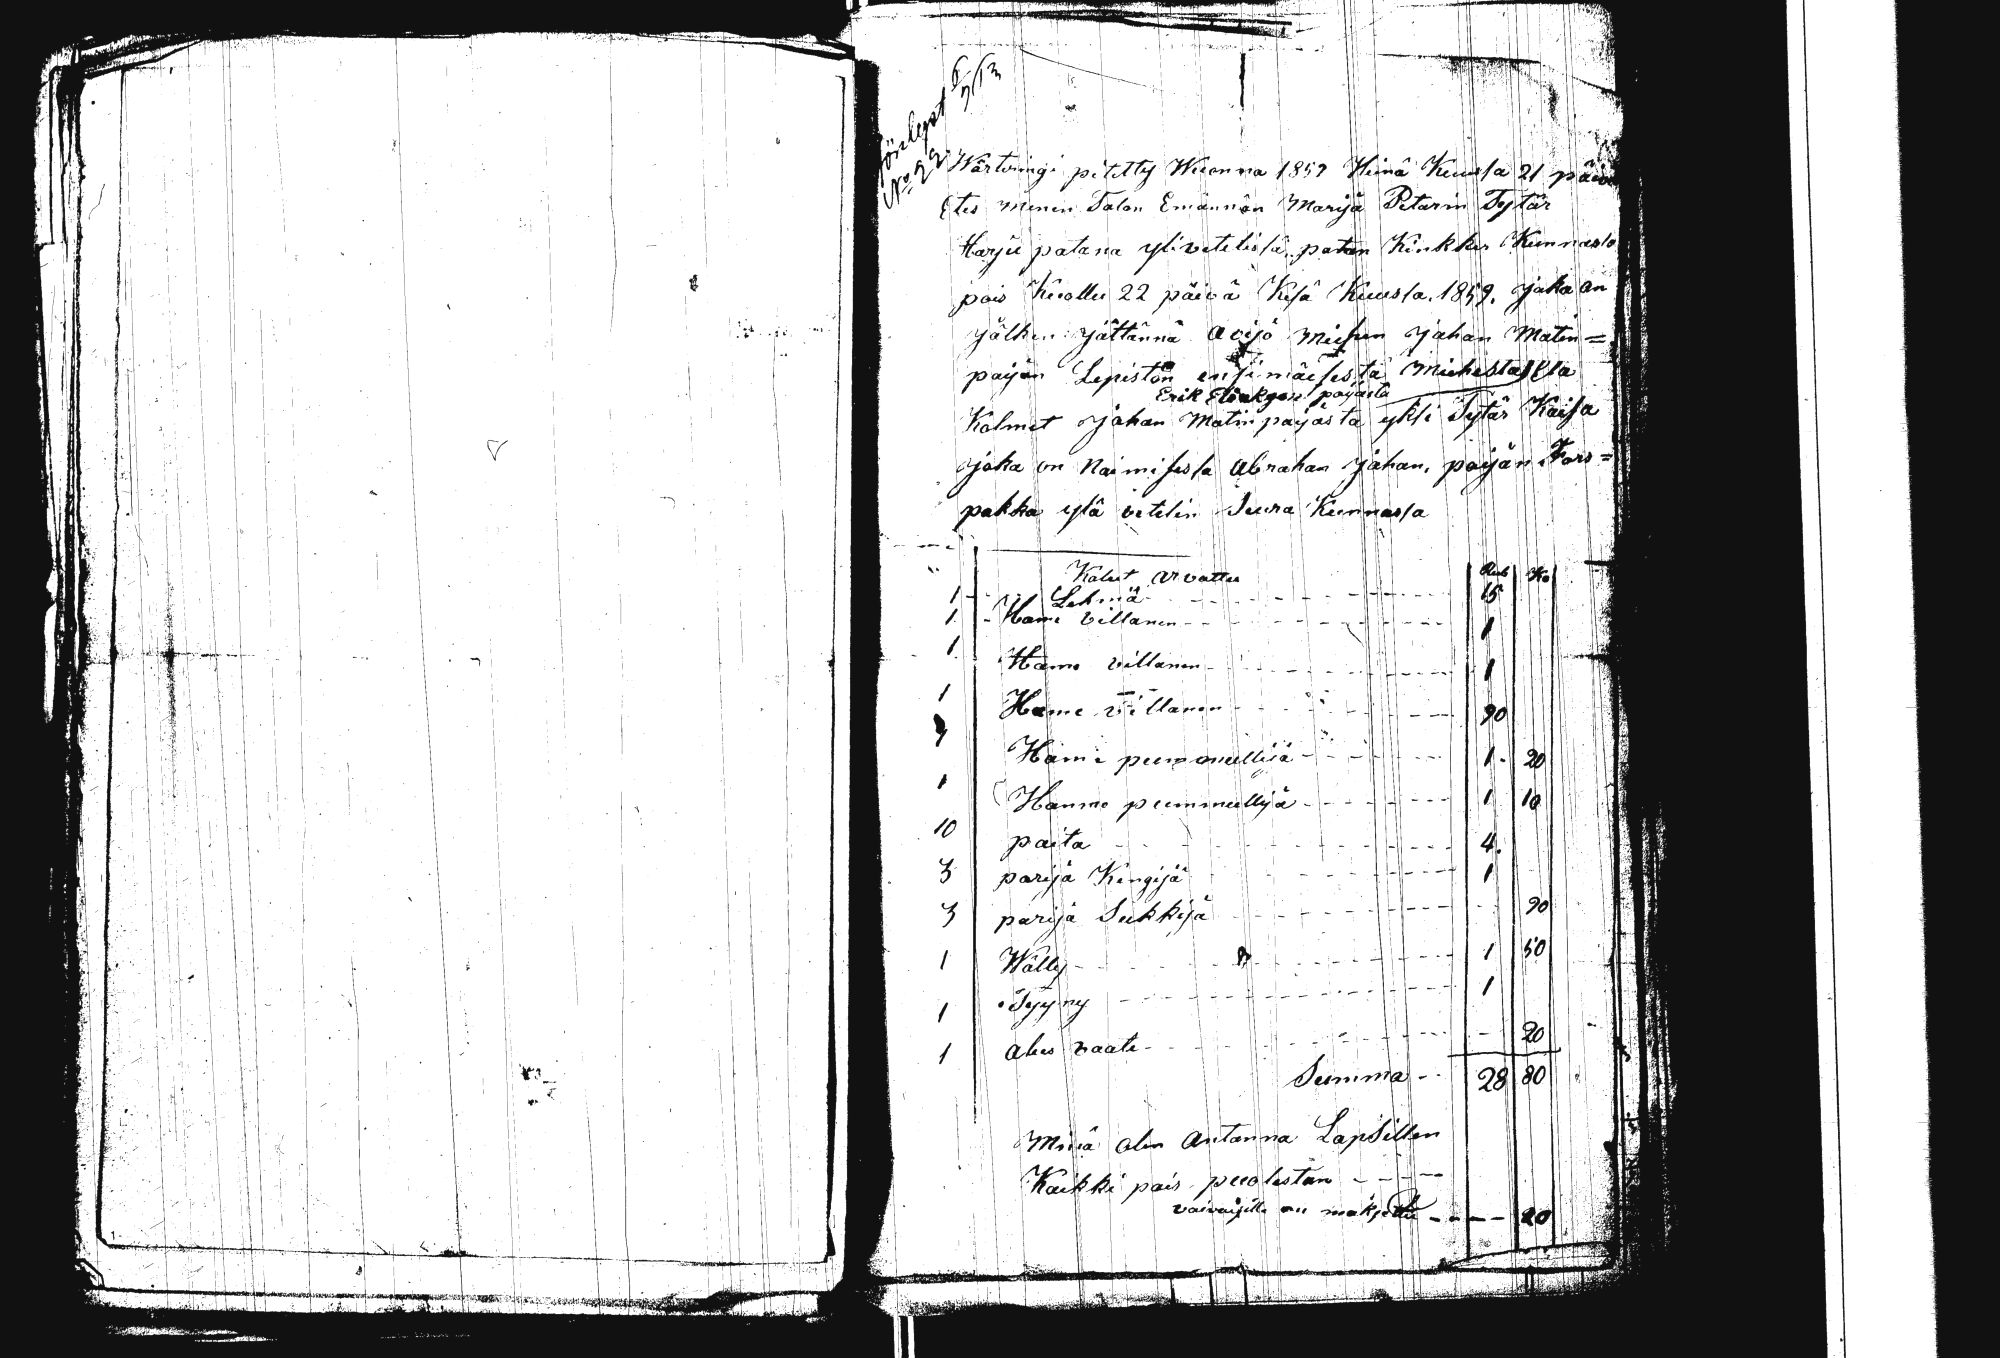 N:o 22.
Wärtvingi pitetty Wuonna 1859 Heinä Kuusa 21 päivä
Etes menen Talon Emännän Marijä Petarin Tytär
Harju patana ylivetelistä patan Kinkker Kunnasta
pois Kuollu 22 päivä Kesä Kuusa. 1859. joka on
jälken jättännä avijo miehen johan Matin=
poijan Lepistön ensimäisestä Miehestä
Erik Eliakgen pojasta
Kolmet Johan Matin pojasta yksi Tytär Kaisa
joka on Naimisesta Abrahan Johan. poijän Fors=
pakka ylä vetelin Seura Kunnassa
Kalut arvattu Rub Ko
1 Lehmä 15
1 Hame villanen 1
1 Hame villanen 1
1 Hame villanen 90
Hame pummullijä 1. 20
1 Hamme pummullijä 1 10
10 paita 4.
3 parijä Kengijä 1
3 parijä Sukkijä 90
1 Wälly 1 50
1 Tyyny 1
1 alus vaate 20
Summa 28 80
Minä olen antanna Lapsillen
Kaikki pois puolestan
vaivaisille on maksettu 20